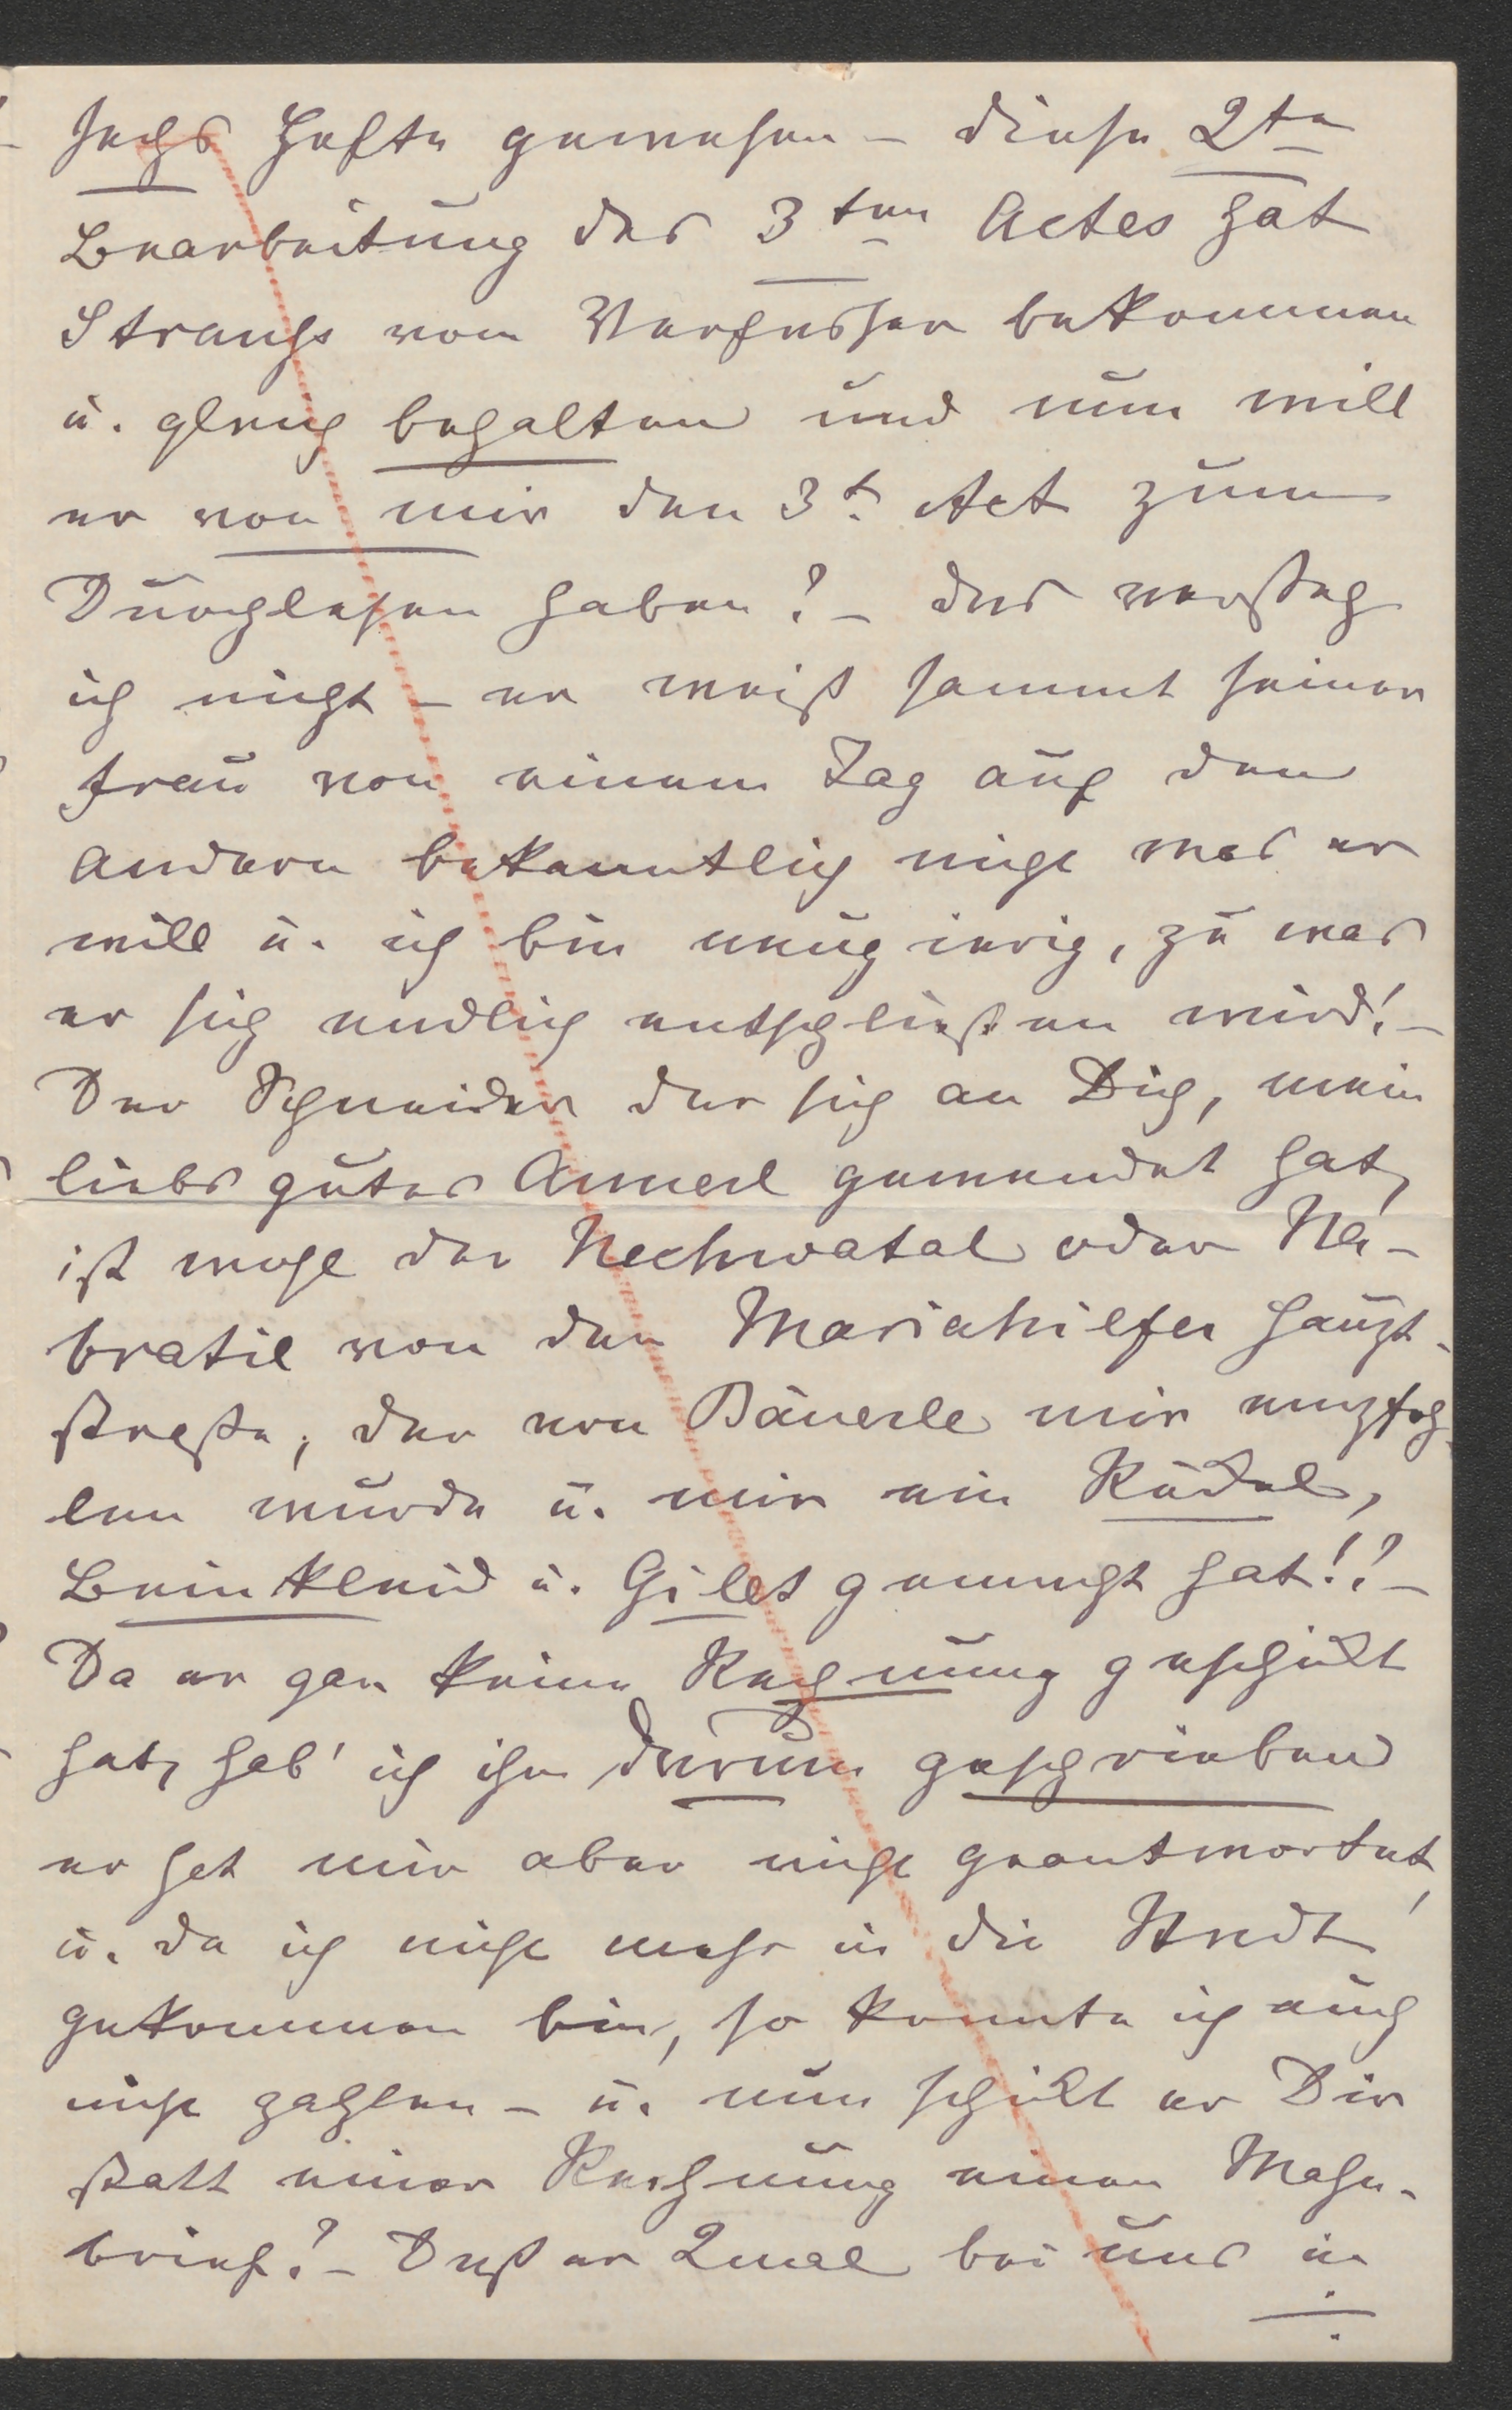 sechs Hefte gewesen – diese 2te
Bearbeitung des 3ten Actes hat
Strauss vom Verfasser bekommen
u. gleich behalten und nun will
er von mir den 3t. Act zum
Durchlesen haben? – das versteh
ich nicht – er weiß sammt seiner
Frau von einem Tag auf den
Andern bekanntlich nicht was er
will u. ich bin neugierig, zu was
er sich endlich entschließen wird! –
Der Schneider der sich an Dich, mein
liebes gutes Annerl gewendet hat,
ist wohl der Nechwatal oder Na-
bratil von der Mariahilfer Haupt-
straße, der von Bäuerle mir empfoh-
len wurde u. mir ein Röckel,
Beinkleid u. Gilet gemacht hat!? –
Da er gar keine Rechnung geschickt
hat, hab' ich ihn darum geschrieben
er hat mir aber nicht geantwortet,
u. da ich nicht mehr in die Stadt
gekommen bin, so konnte ich auch
nicht zahlen – u. nun schickt er Dir
statt einer Rechnung einen Mahn-
brief? – Daß er 2mal bei uns in